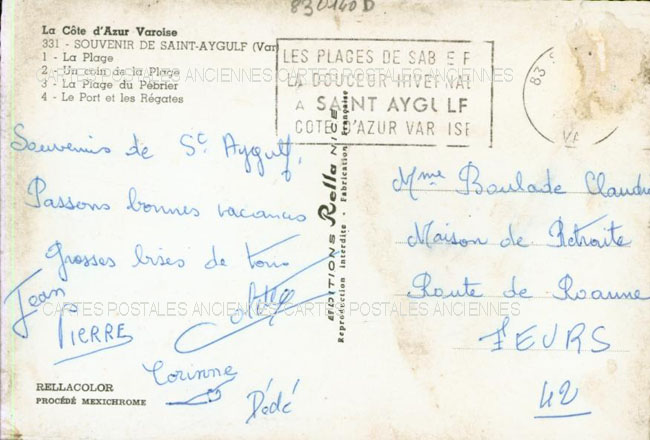 83 0140 D
La Côte d'Azur Varoise
331 - SOUVENIR DE SAINT-AYGULF (Var)
1 - La Plage
2 - Un coin de la Plage
3 - La Plage du Pébrier
4 - Le Port et les Régates
LES PLAGES DE SABLE F
LA DOUCEUR HIVERNAL
A SAINT AYGULF
COTE D'AZUR VAROISE
83
VAR
CARTES POSTALES ANCIENNES CARTES POSTALES ANCIENNES
Souvenirs de St Aygulf.
Passons bonnes vacances
Grosses bises de tous
Jean
PIERRE
Corinne
Dédé
EDITIONS Rella NICE
Reproduction Interdite - Fabrication Française
Mme Boulade Claudi
Maison de Retraite
Route de Roanne
FEURS
42
CARTES POSTALES ANCIENNES CARTES POSTALES ANCIENNES
RELLACOLOR
PROCÉDÉ MEXICHROME